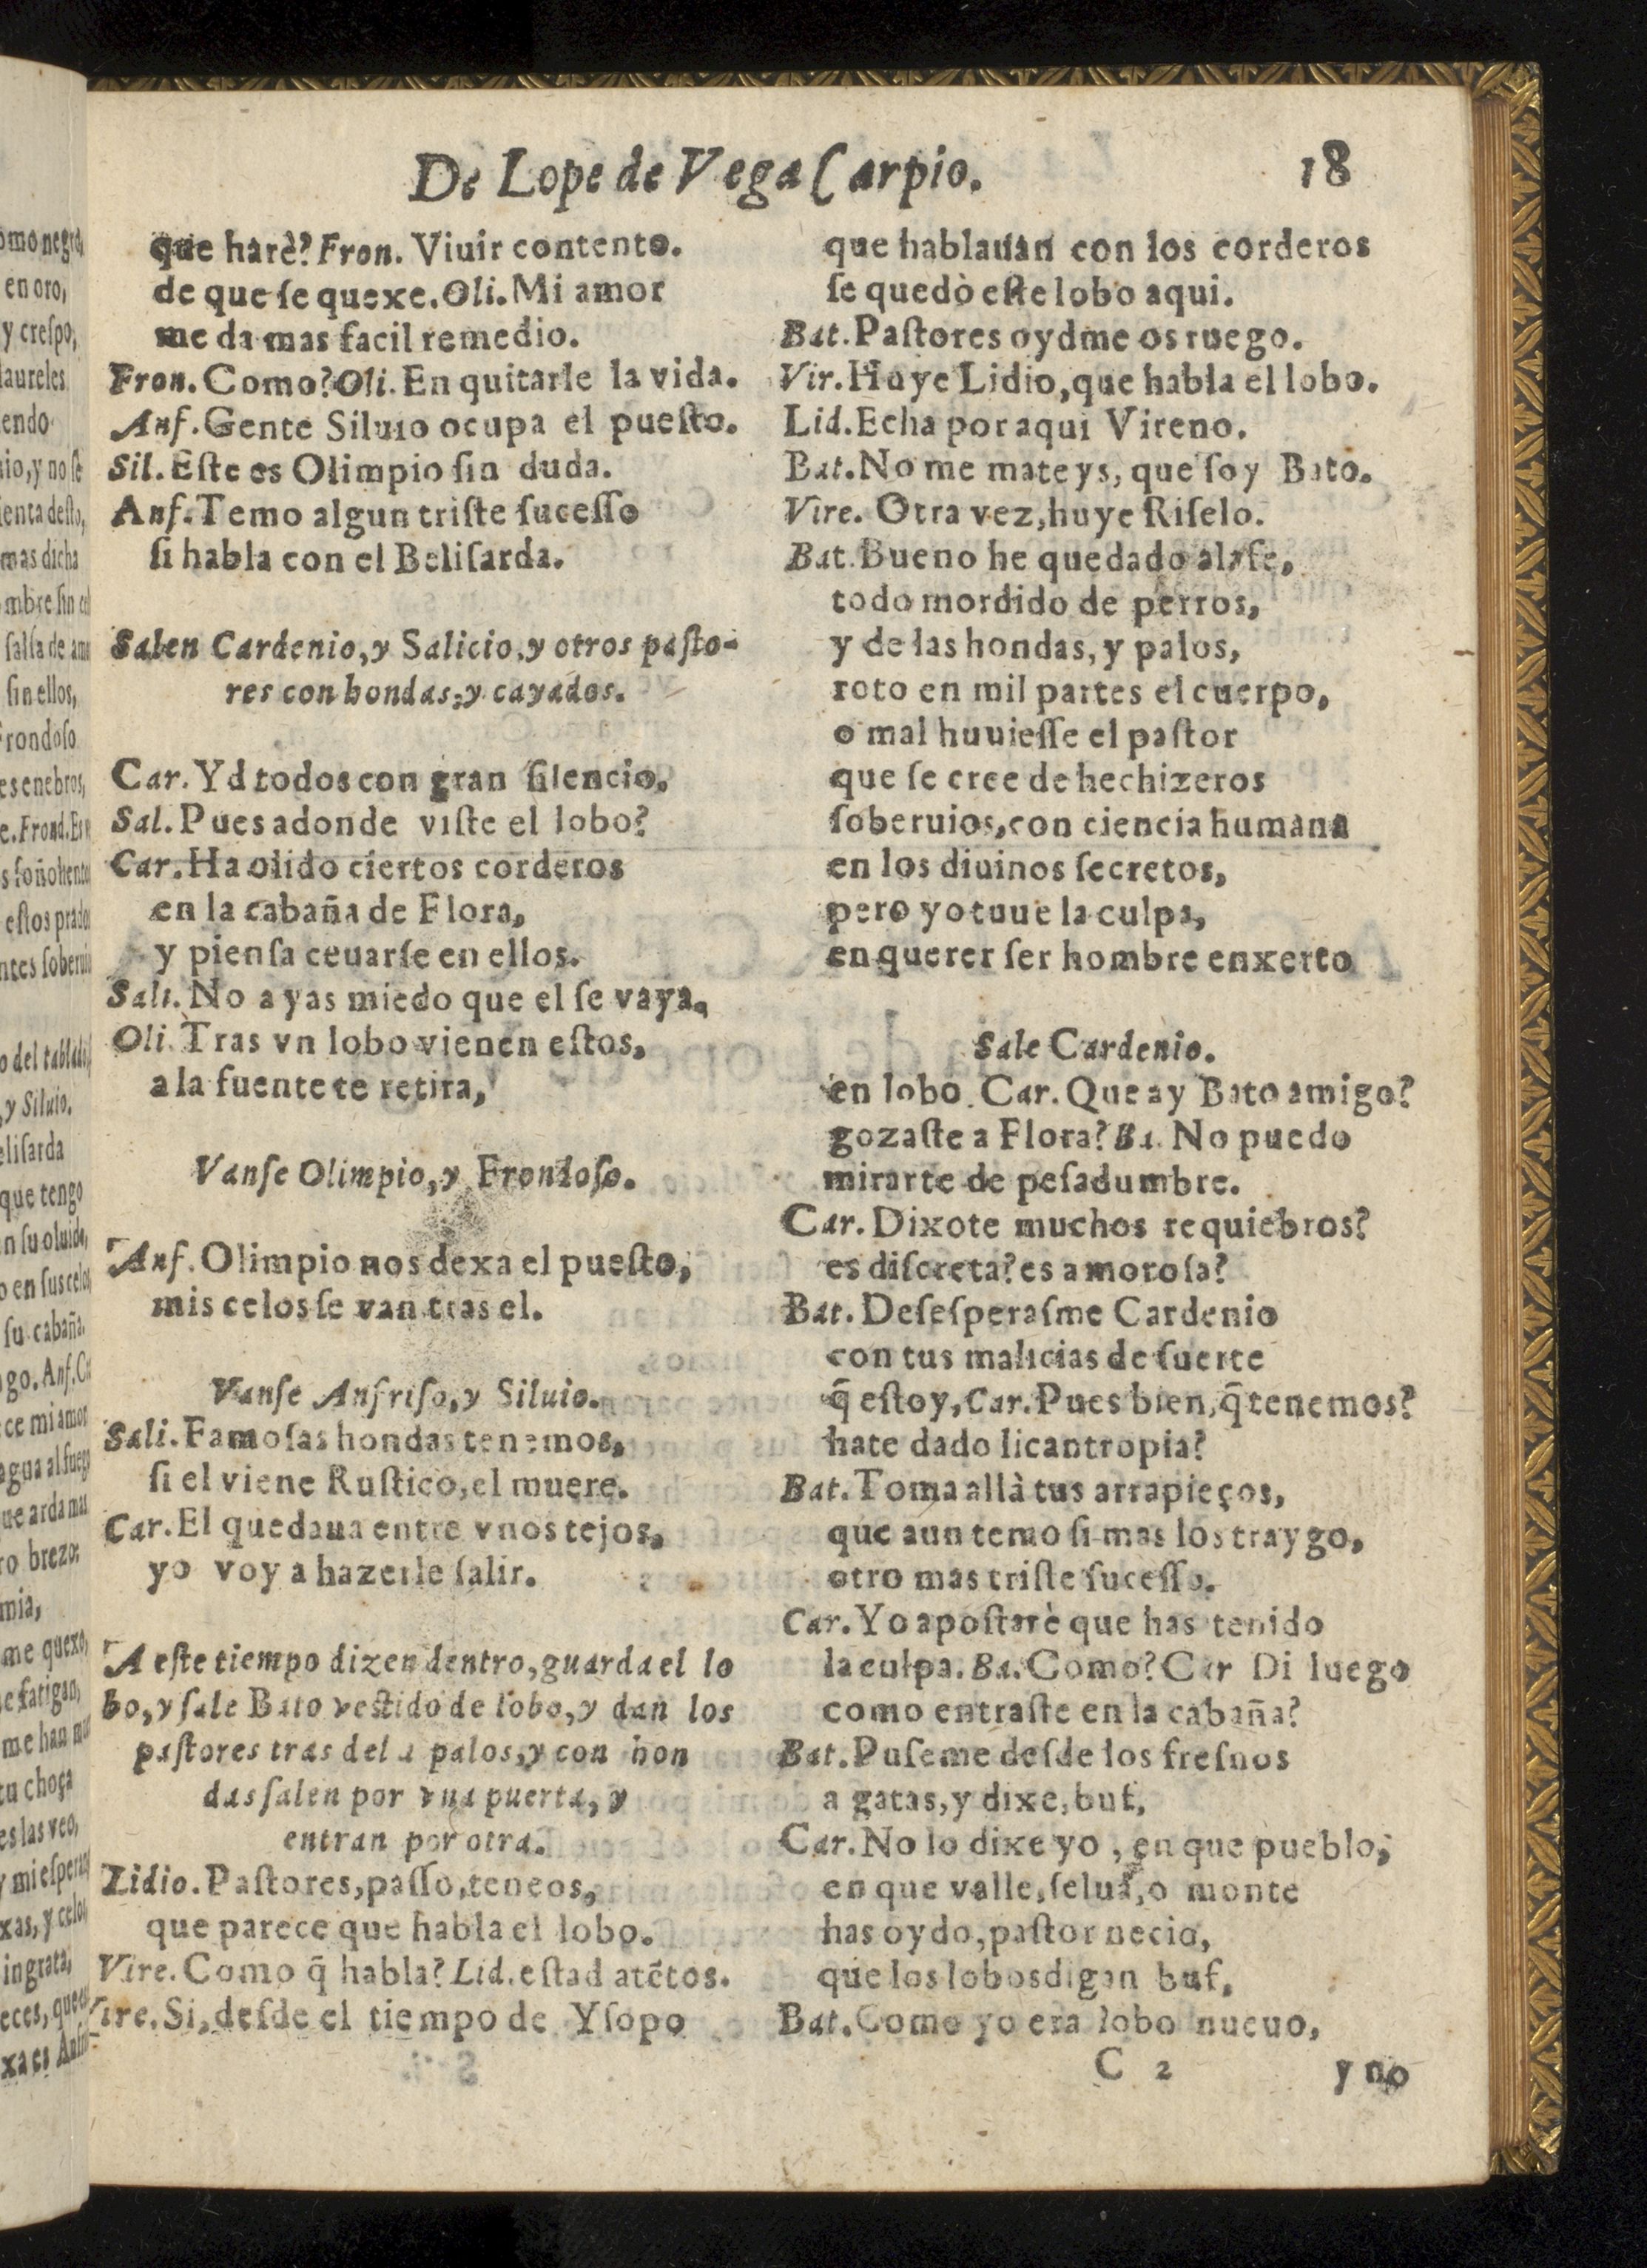 De Lope de Vega Carpio.
18
que harè? Fron. Viuir contento.
de que ſe quexe. Oli. Mi amor
me da mas facil remedio.
Fron. Como? Oli. En quitarle la vida.
Anf. Gente Siluio ocupa el pueſto.
Sil. Eſte es Olimpio ſin duda.
Anf. Temo algun triſte ſuceſſo
ſi habla con el Beliſarda.
Salen Cardenio, y Salicio, y otros paſto-
res con hondas, y cayados.
Car. Yd todos con gran ſilencio.
Sal. Pues adonde viſte el lobo?
Car. Ha olido ciertos corderos
en la cabaña de Flora,
y pienſa ceuarſe en ellos.
Sali. No ayas miedo que el ſe vaya.
Oli. Tras vn lobo vienen eſtos,
a la fuente te retira,
Vanſe Olimpio, y Frondoſo.
Anf. Olimpio nos dexa el pueſto,
mis celos ſe van tras el.
Vanſe Anfriſo, y Siluio.
Sali. Famoſas hondas tenemos,
ſi el viene Ruſtico, el muere.
Car. El quedaua entre vnos tejos,
yo voy a hazerle ſalir.
A eſte tiempo dizen dentro, guarda el lo
bo, y ſale Bato veſtido de lobo, y dan los
paſtores tras del a palos, y con hon
das ſalen por vna puerta, y
entran por otra.
Lidio. Paſtores, paſſo, teneos,
que parece que habla el lobo.
Vire. Como q̃ habla? Lid. eſtad atẽtos.
Vire. Si, deſde el tiempo de Yſopo
que hablauan con los corderos
ſe quedò eſte lobo aqui.
Bat. Paſtores oydme os ruego.
Vir. Huye Lidio, que habla el lobo.
Lid. Echa por aqui Vireno.
Bat. No me mateys, que ſoy Bato.
Vire. Otra vez, huye Riſelo.
Bat. Bueno he quedado alafe,
todo mordido de perros,
y de las hondas, y palos,
roto en mil partes el cuerpo,
o mal huuieſſe el paſtor
que ſe cree de hechizeros
ſoberuios, con ciencia humana
en los diuinos ſecretos,
pero yo tuue la culpa,
en querer ſer hombre enxerto
Sale Cardenio.
en lobo. Car. Que ay Bato amigo?
gozaſte a Flora? Ba. No puedo
mirarte de peſadumbre.
Car. Dixote muchos requiebros?
es diſcreta? es amoroſa?
Bat. Deſeſperaſme Cardenio
con tus malicias de ſuerte
q̃ eſtoy, Car. Pues bien, q̃ tenemos?
hate dado licantropia?
Bat. Toma allà tus arrapieços,
que aun temo ſi mas los traygo,
otro mas triſte ſuceſſo.
Car. Yo apoſtarè que has tenido
la culpa. Ba. Como? Car Di luego
como entraſte en la cabaña?
Bat. Puſeme deſde los freſnos
a gatas, y dixe, buf,
Car. No lo dixe yo, en que pueblo,
en que valle, ſelua, o monte
has oydo, paſtor necio,
que los lobos digan buf,
Bat. Como yo era lobo nueuo,
C 2
y no